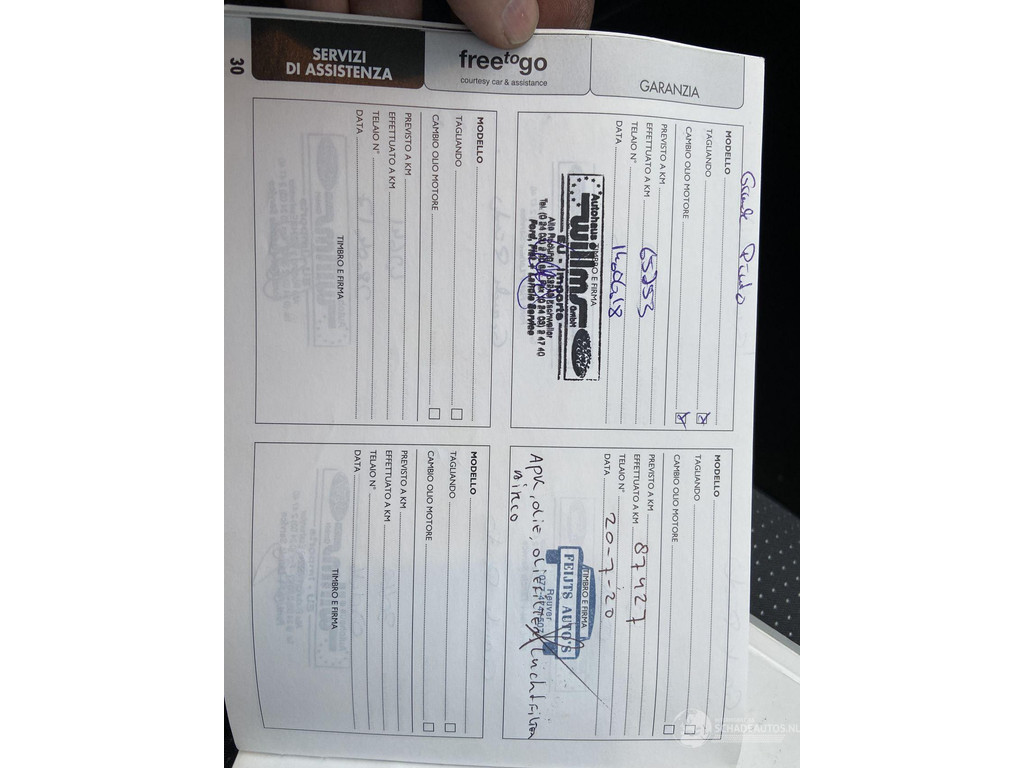 30
SERVIZI
DI ASSISTENZA
freetogo
courtesy car & assistance
GARANZIA
MODELLO Grande Punto
TAGLIANDO
CAMBIO OLIO MOTORE
PREVISTO A KM
EFFETTUATO A KM 65253
TELAIO N°
DATA 14.06.18
TIMBRO E FIRMA
Autohaus
willms
GmbH
EU - Importe
Ford, Fiat + Lancia Service
MODELLO
TAGLIANDO
CAMBIO OLIO MOTORE
PREVISTO A KM
EFFETTUATO A KM 87427
TELAIO N°
DATA 20-7-20
TIMBRO E FIRMA
FEIJTS AUTO'S
Reuver
APK, olie, oliefilter, luchtfilter
MODELLO
TAGLIANDO
CAMBIO OLIO MOTORE
PREVISTO A KM
EFFETTUATO A KM
TELAIO N°
DATA
TIMBRO E FIRMA
MODELLO
TAGLIANDO
CAMBIO OLIO MOTORE
PREVISTO A KM
EFFETTUATO A KM
TELAIO N°
DATA
TIMBRO E FIRMA
SCHADEAUTOS.NL